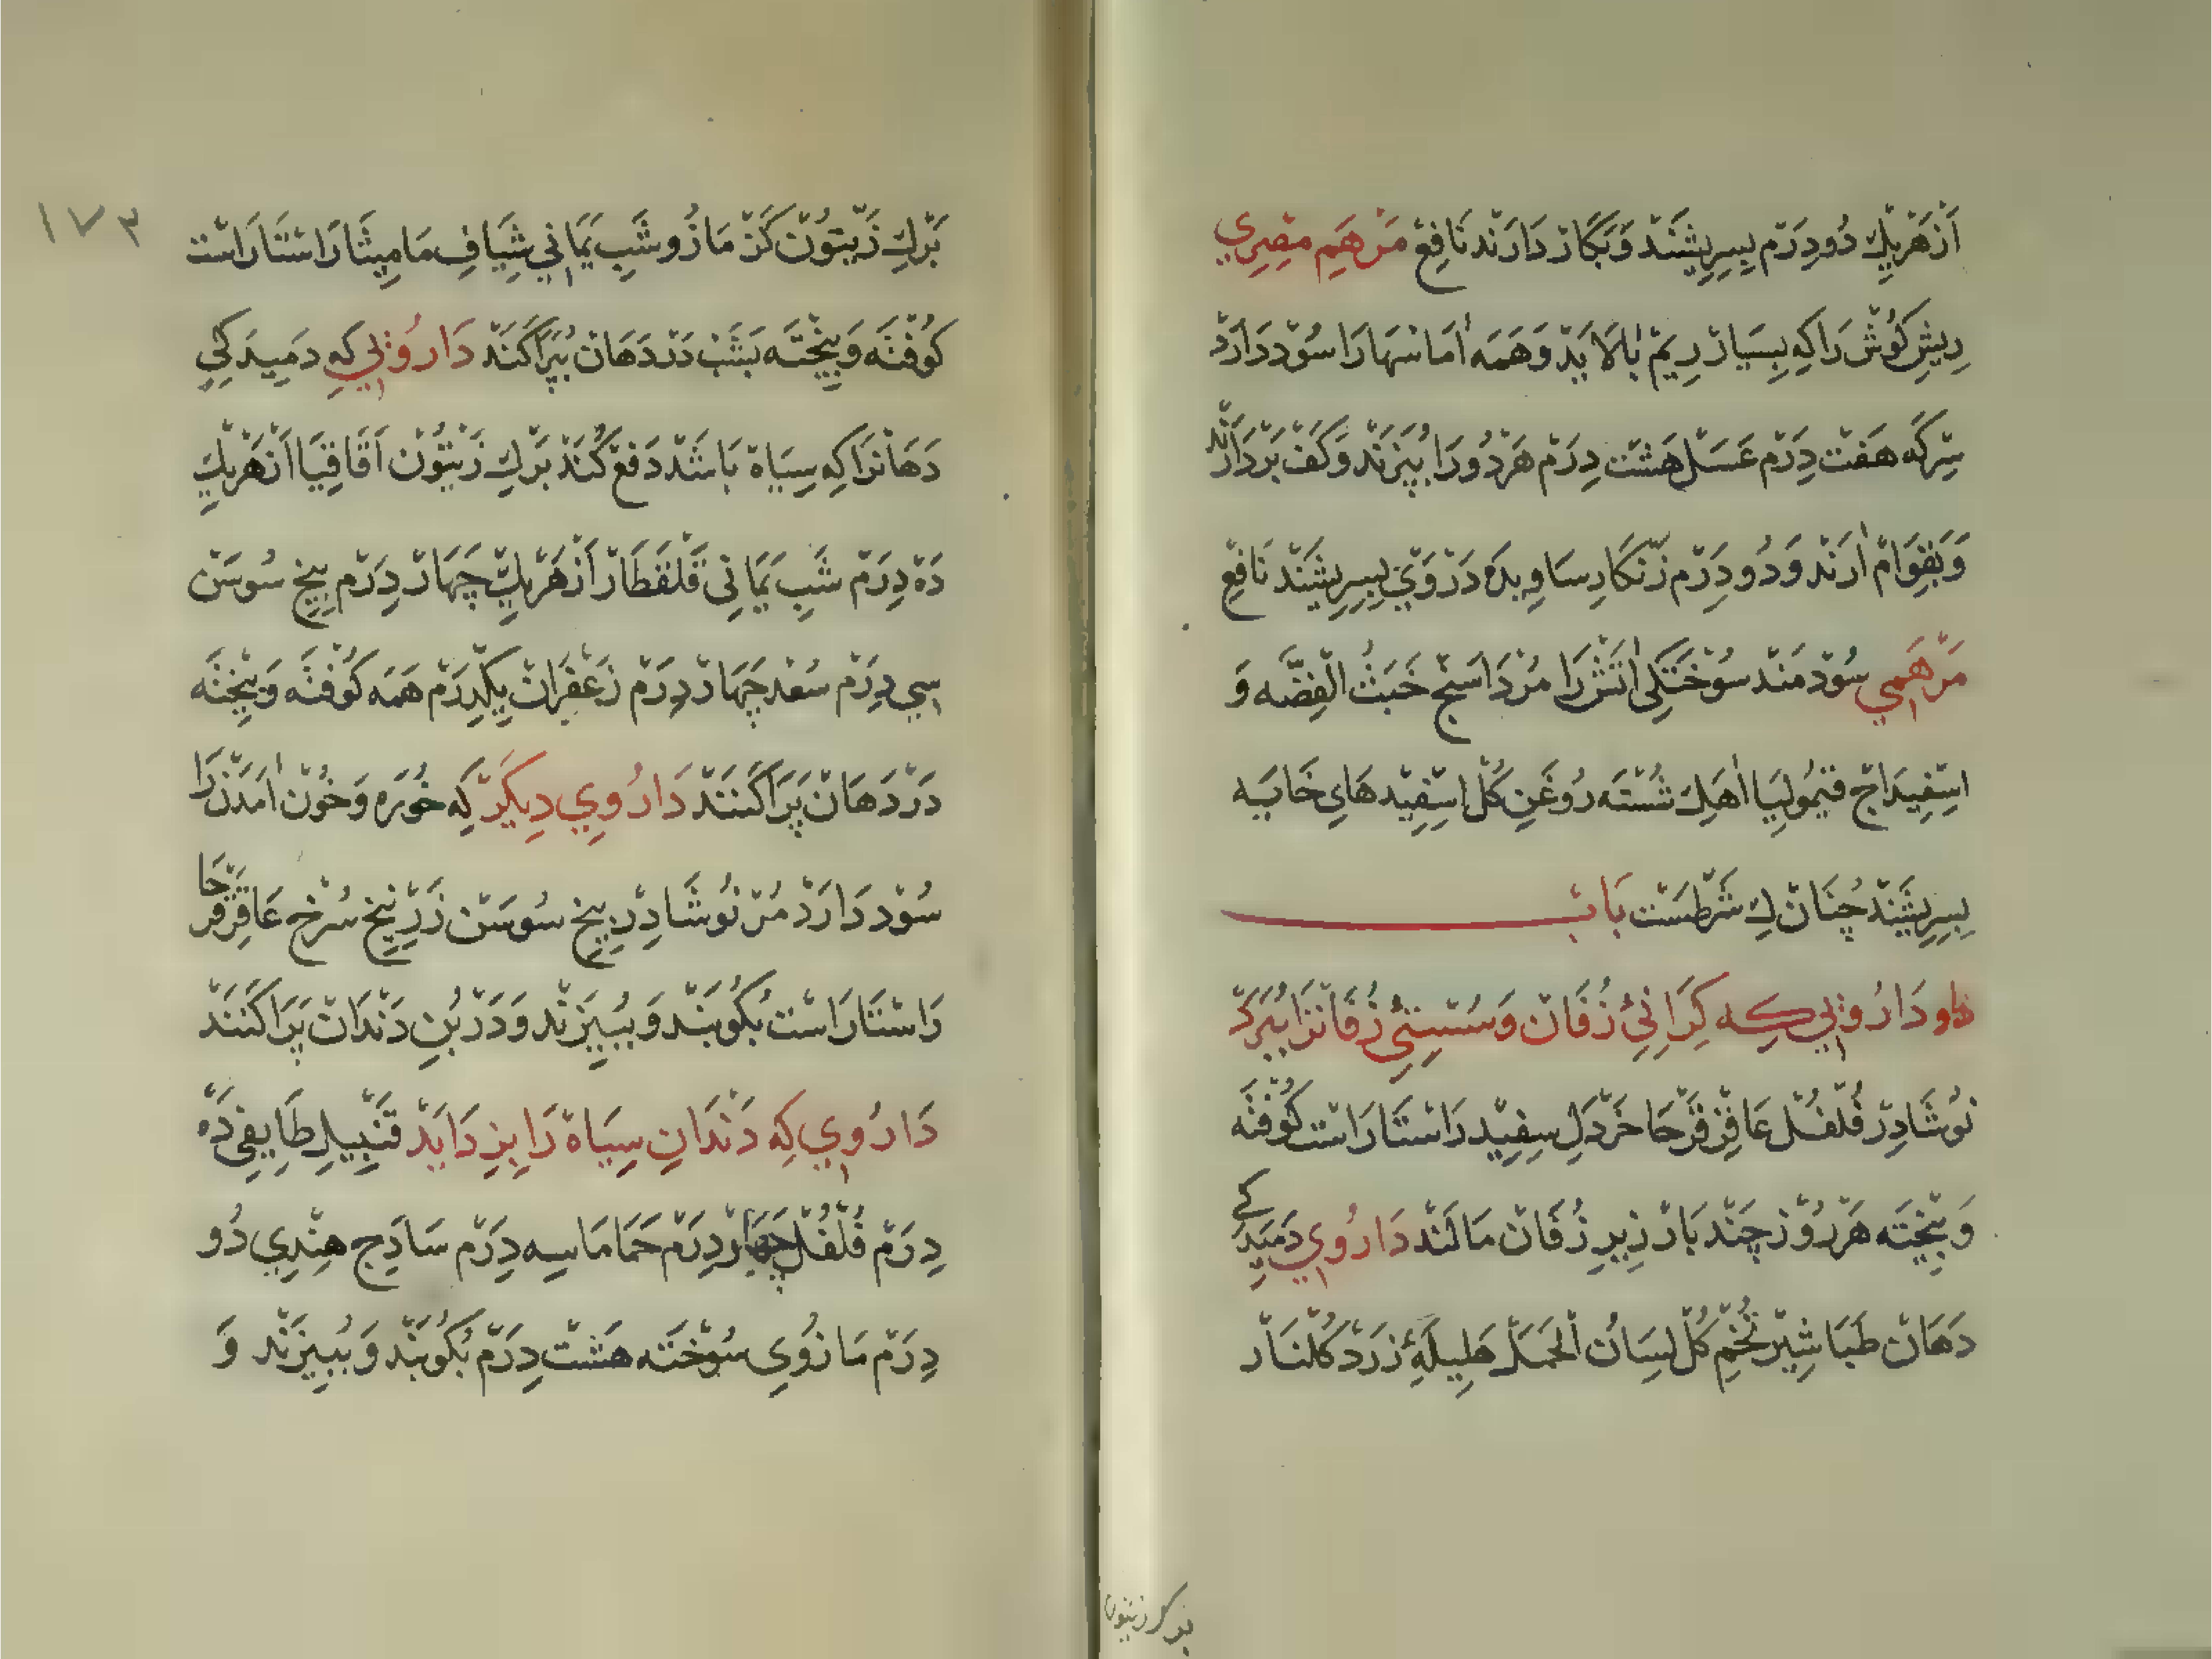 اَزْهَرْيِكْ دُودِرَمْ بِسِرِيشَنْدْ وَبَكَارْ دَارَنْد نَافِعْ مَرْهَمِ مِصْرِي
رِيشِ كَوُشْ رَا كِه بِسْيَارْ رِيمْ پَالَايَدْ وَهَمَه اٰمَاسْهَارَا سُوْد دَارَدْ
سِرْكَه هَفْتْ دِرَمْ عَسَلْ هَشْتْ دِرَمْ هَرْدُورَا بِپَزَنْد وَكَفْ بَرْدَارَنْد
وَبَقِوَامْ اٰرَنْد وَدُو دِرَمْ زَنْكَار سَاوِيدَه دَرْوَيْ بِسِرِيشَنْد نَافِعْ
مَرْهَمِي سُوْدمَنْد سُوْخْتَكِي اٰتَشْرَا مُرْدَاسَنْج خَبَثُ الْفِضَّه وَ
اسْفِيدَاج قيمُولِيَا اٰهَكِ شُسْتَه رُوغَنِ كُل اِسْفِيدهَايِ خَايَه
بِسِرِيشَنْدْ چُنَانْ كِ شَرْطَسْت بَابْ
دَارُوئي كِه كِرَانِئ زُفَانْ وَسُسْتِئ زُفَانْرَا بِبَرَدْ
نُوشَادِرْ فُلْفُلْ عَاقِرْقَرْحَا خَرْدَلِ سِفِيْد رَاسْتَارَاسْت كُوْفْتَه
وَبِيْخْتَه هَرْرُوْز چَنْد بَارْ زِيرِ زُفَانْ مَالَنْد دَارُوي دَمِيدَكِي
دَهَانْ طَبَاشِيْر تُخْمِ كُل لِسَانُ الْحَمَلْ هَلِيلَهٔ زَرْدْ كُلْنَار
برك زيتون
١٧٣
بَرْكِ زَيْتُونْ كَزْ مَازُو شَبِ يَمَانِي شِيَافِ مَامِيثَا رَاسْتَارَاسْت
كُوفْتَه وَبِيخْتَه بَشَبْ دَرْدَهَانْ بِپَرَاكَنَنْد دَارُوئي كِه دَمِيدَكِي
دَهَانْرَا كِه سِيَاه بَاشَدْ دَفْعْ كُنَدْ بَرْكِ زَيْتُونْ اَقَاقِيَا اَزْهَرْيِكْ
دَه دِرَمْ شَبِ يَمَانِي قَلْقَطَارْ اَزْهَرْيِكْ چَهَارْ دِرَمْ بِيخ سُوسَنْ
سِي دِرَمْ سُعْد چَهَارْ دِرَمْ زَعْفَرَانْ يِكْدِرَمْ هَمَه كُوْفْتَه وَبِيخْتَه
دَرْدَهَانْ پَرَاكَنَنْدْ دَارُوي دِيكَرْ كِه خُورَه وَخُونْ اٰمَدَنْ رَا
سُوْد دَارَدْ مُرْ نُوشَادِرْ بِيخ سُوسَنْ زَرْنِيخِ سُرْخ عَاقِرْقَرْحَا
رَاسْتَارَاسْت بُكُوبَنْد وَبِبِيزَنْد وَدَرْبُنِ دَنْدَانْ پَرَاكَنَنْد
دَارُوي كِه دَنْدَانِ سِيَاهْ رَا بِزِدَايَدْ قَنْبِيلِ طَايِفِي دَه
دِرَمْ فُلْفُلْ چَهَارْ دِرَمْ حَمَامَا سِه دِرَمْ سَاذِج هِنْدِي دُو
دِرَمْ مَازُوي سُوْخْتَه هَشْتْ دِرَمْ بُكُوبَنْد وَبِبِيزَنْد وَ